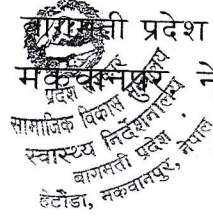 बागमती प्रदेश
मकवानपुर ने
प्रदेश सरकार
सामाजिक विकास मन्त्रालय
स्वास्थ्य निर्देशनालय
बागमती प्रदेश
हेटौंडा, मकवानपुर, नेपाल